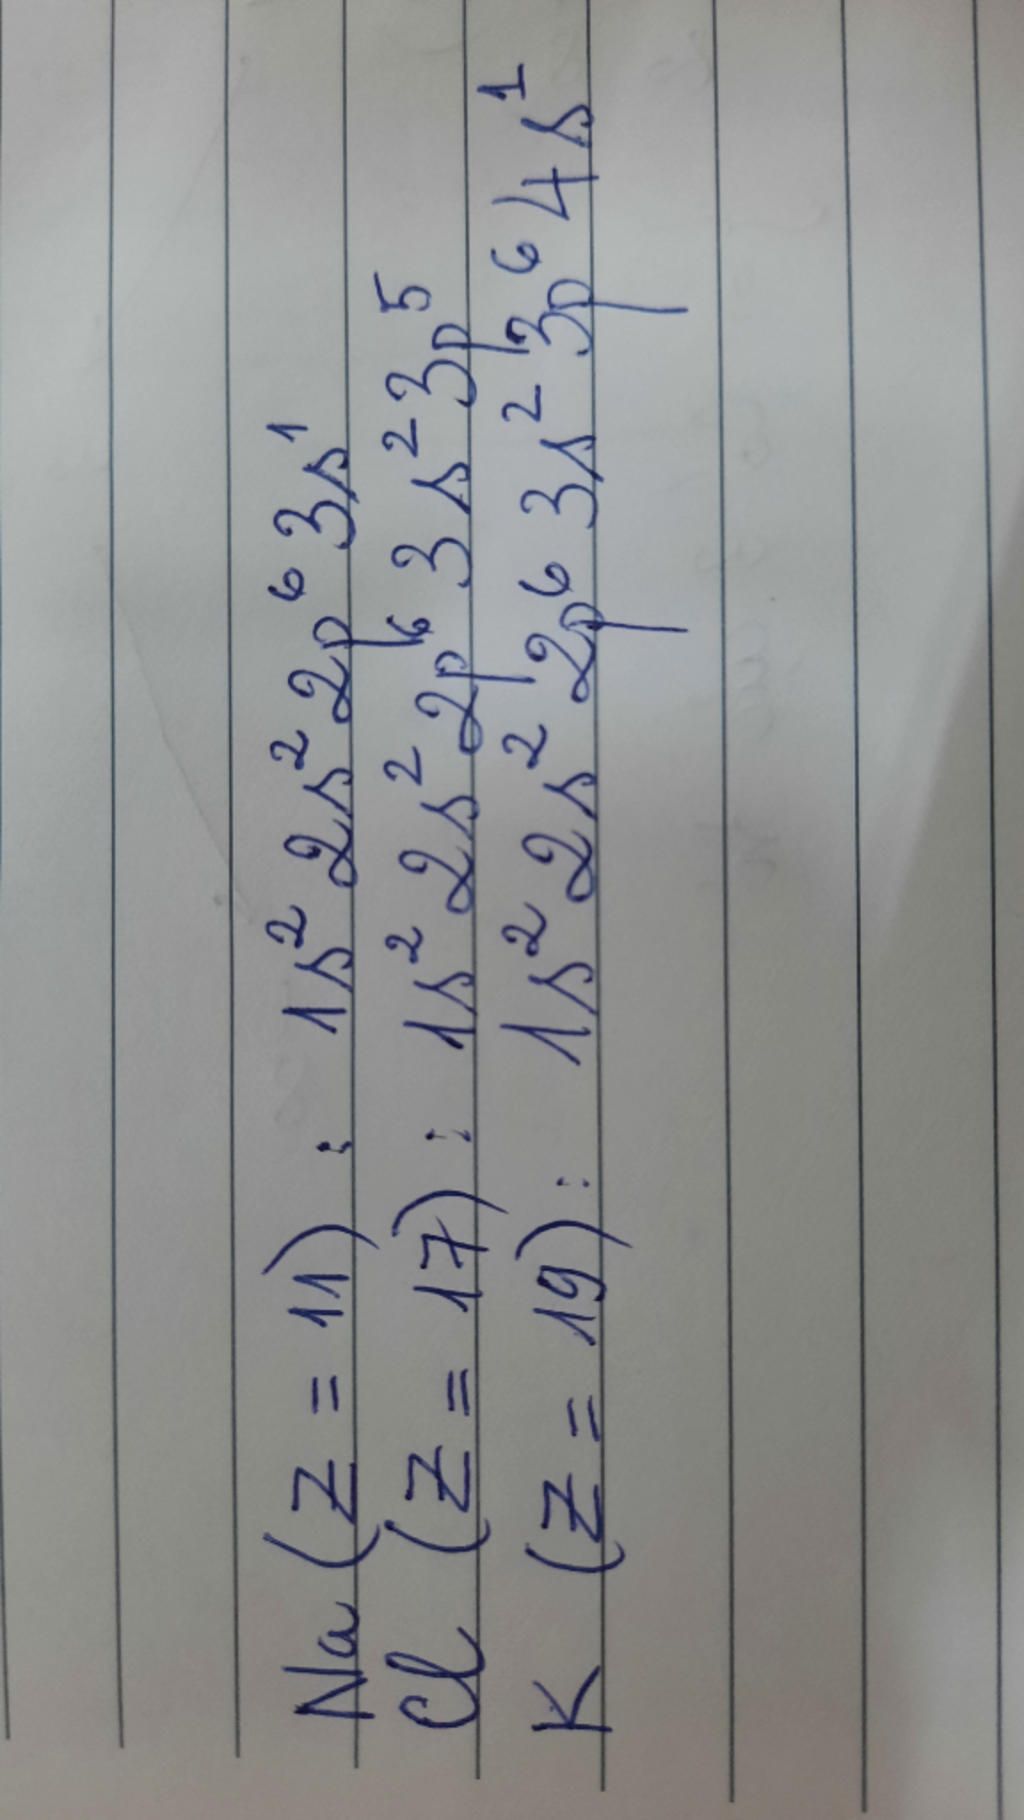 Na (Z = 11) : 1s² 2s² 2p⁶ 3s¹
Cl (Z = 17) : 1s² 2s² 2p⁶ 3s² 3p⁵
K (Z = 19) : 1s² 2s² 2p⁶ 3s² 3p⁶ 4s¹